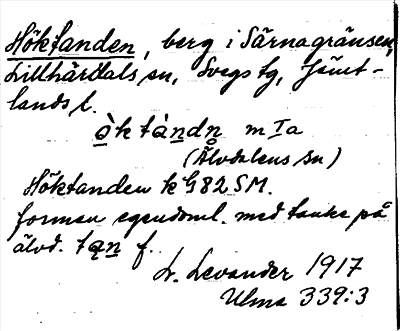 Höktanden, berg i Särnagränsen,
Lillhärdals sn, Svegs tg, Jämt-
lands l.
òktàndn m Ia
(Älvdalens sn)
Höktanden k G82SM.
formen egendoml. med tanke på
älvd. tąn f.
L. Levander 1917
Ulma 339:3